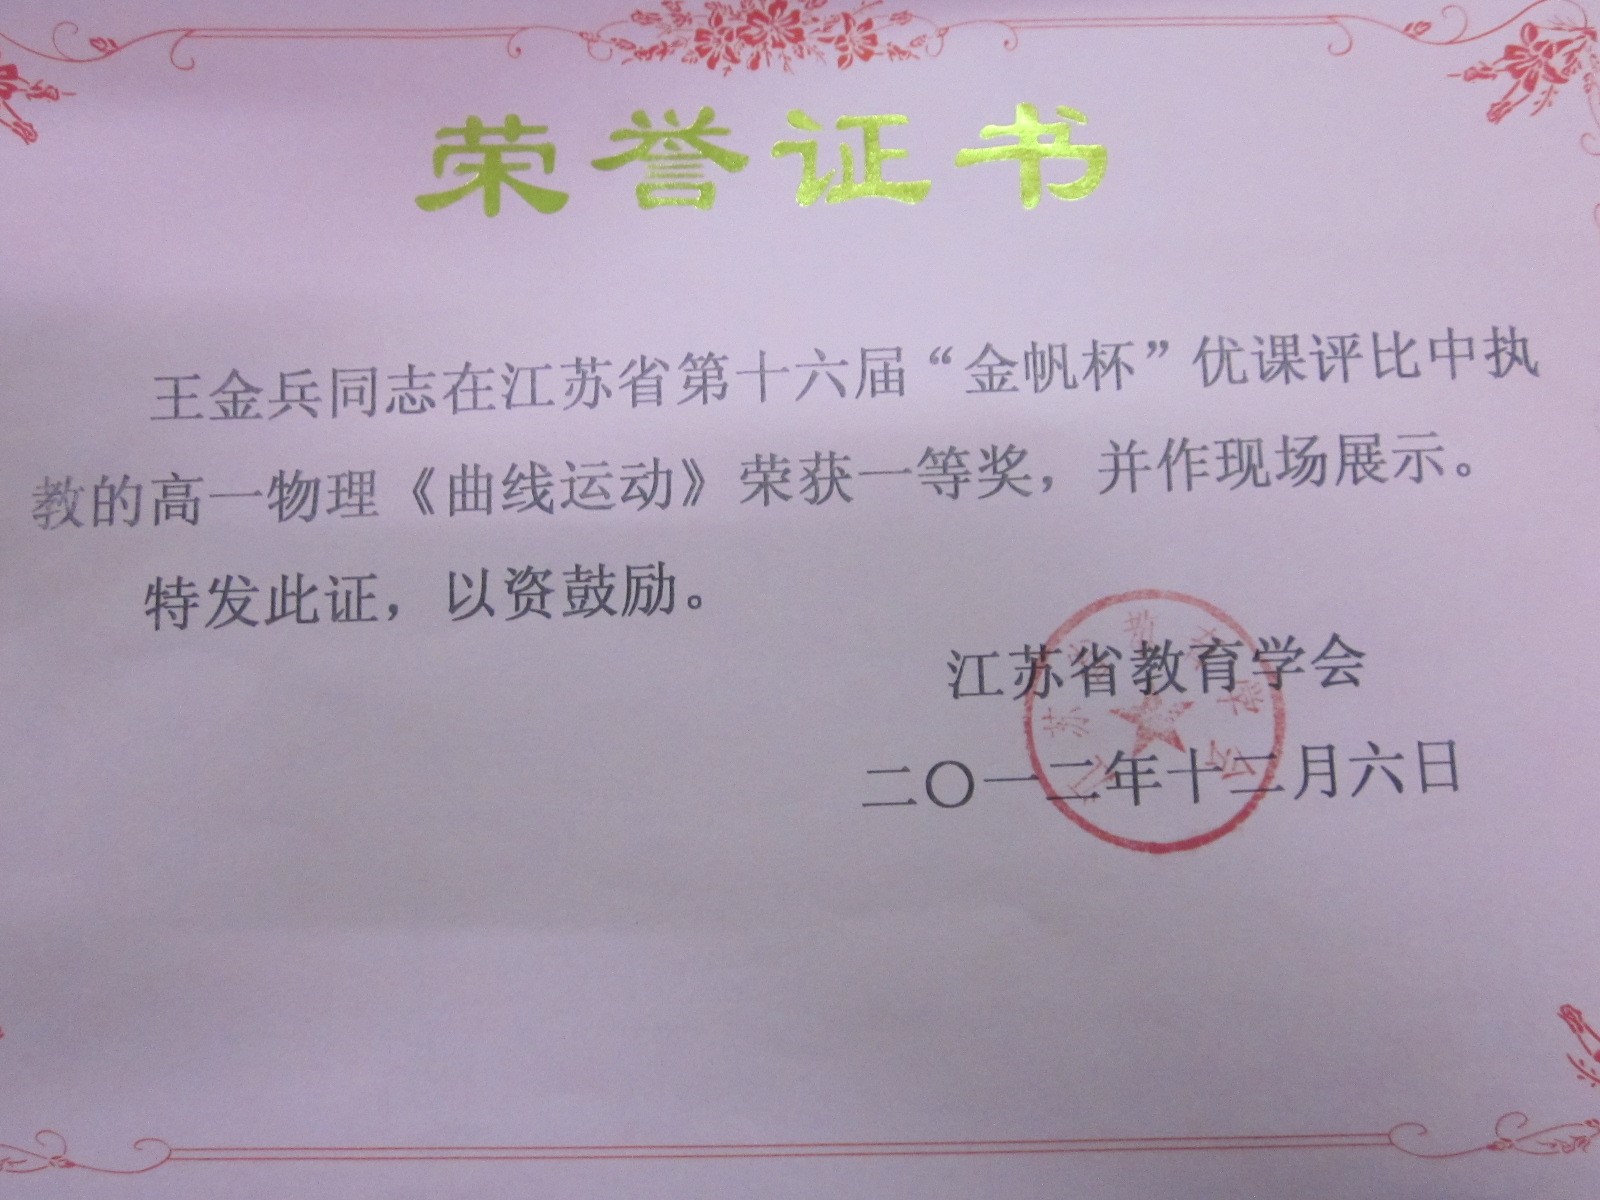 荣誉证书
王金兵同志在江苏省第十六届“金帆杯”优课评比中执
教的高一物理《曲线运动》荣获一等奖，并作现场展示。
特发此证，以资鼓励。
江苏省教育学会
二〇一二年十二月六日
江苏省教育学会